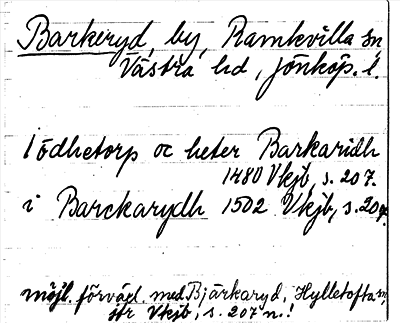 Barkeryd, by, Ramkvilla sn
Västra hd, Jönköp. l.
i ödhetorp oc heter Barkaridh
1480 Vkjb, s. 207.
i Barckarydh 1502 Vkjb, s. 207.
möjl. förväxl. med Bjärkaryd, Hylletofta sn,
str Vkjb, s. 207 n.!